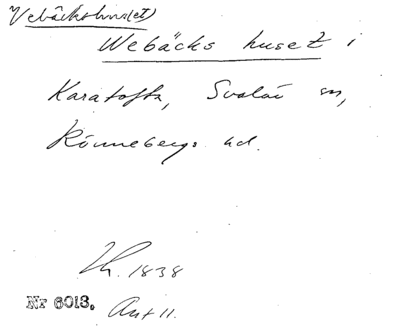 Vebäckshus(et)
Webäcks huset i
Karatofta, Svalöv sn,
Rönnebergs hd.
Th. 1838
Nr 6013. Ant 11.